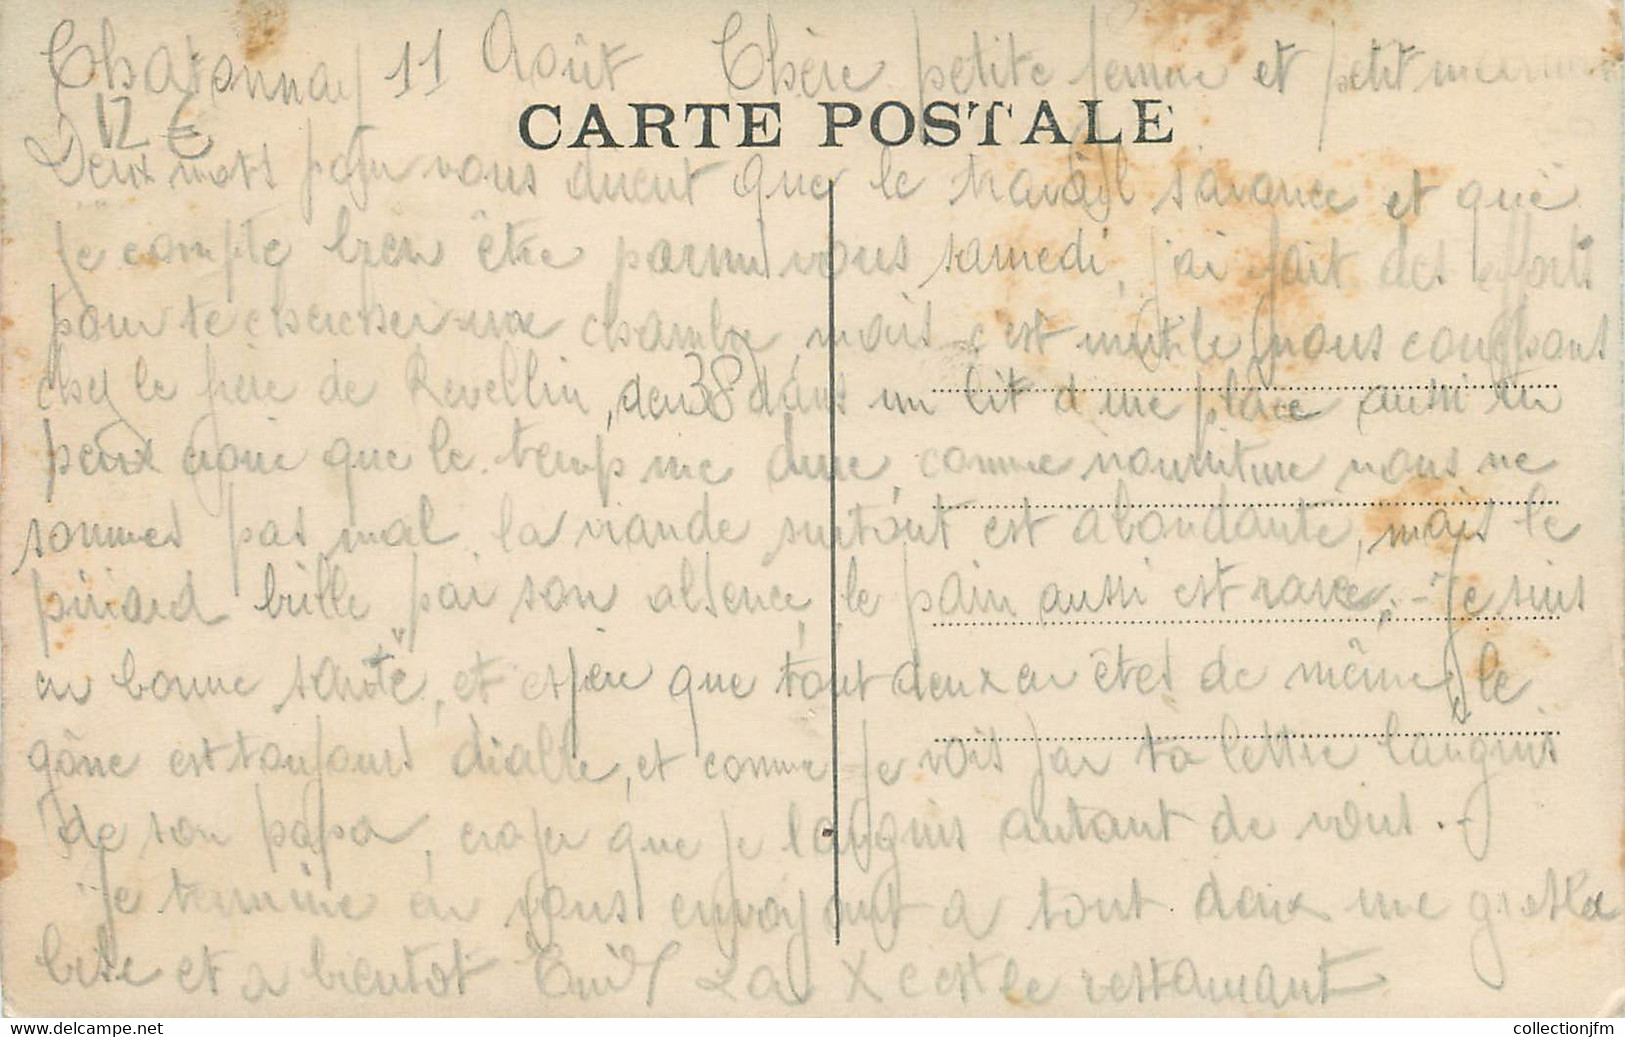 Chatonnay 11 Août Chère petite femme et petit
12 €
CARTE POSTALE
Deux mots pour vous disent que le travail s'avance et que
je compte bien être parmi vous samedi, j'ai fait des efforts
pour te chercher une chambre, mais c'est inutile nous couchons
chez le frère de Revellin, deux dans un lit d'une place aussi tu
38
peux croire que le temp me dure, comme nourriture nous ne
sommes pas mal, la viande surtout est abondante, mais le
pinard brille par son absence, le pain aussi est rare. - Je suis
en bonne santé, et espère que tout deux en êtes de même, le
gône est toujours diable, et comme je vois par ta lettre languis
de son papa, croyer que je languis autant de vous. -
je termine en vous envoyant a tout deux une grosse
bise et a bientôt Emile La X c'est le restaurant
collectionjfm